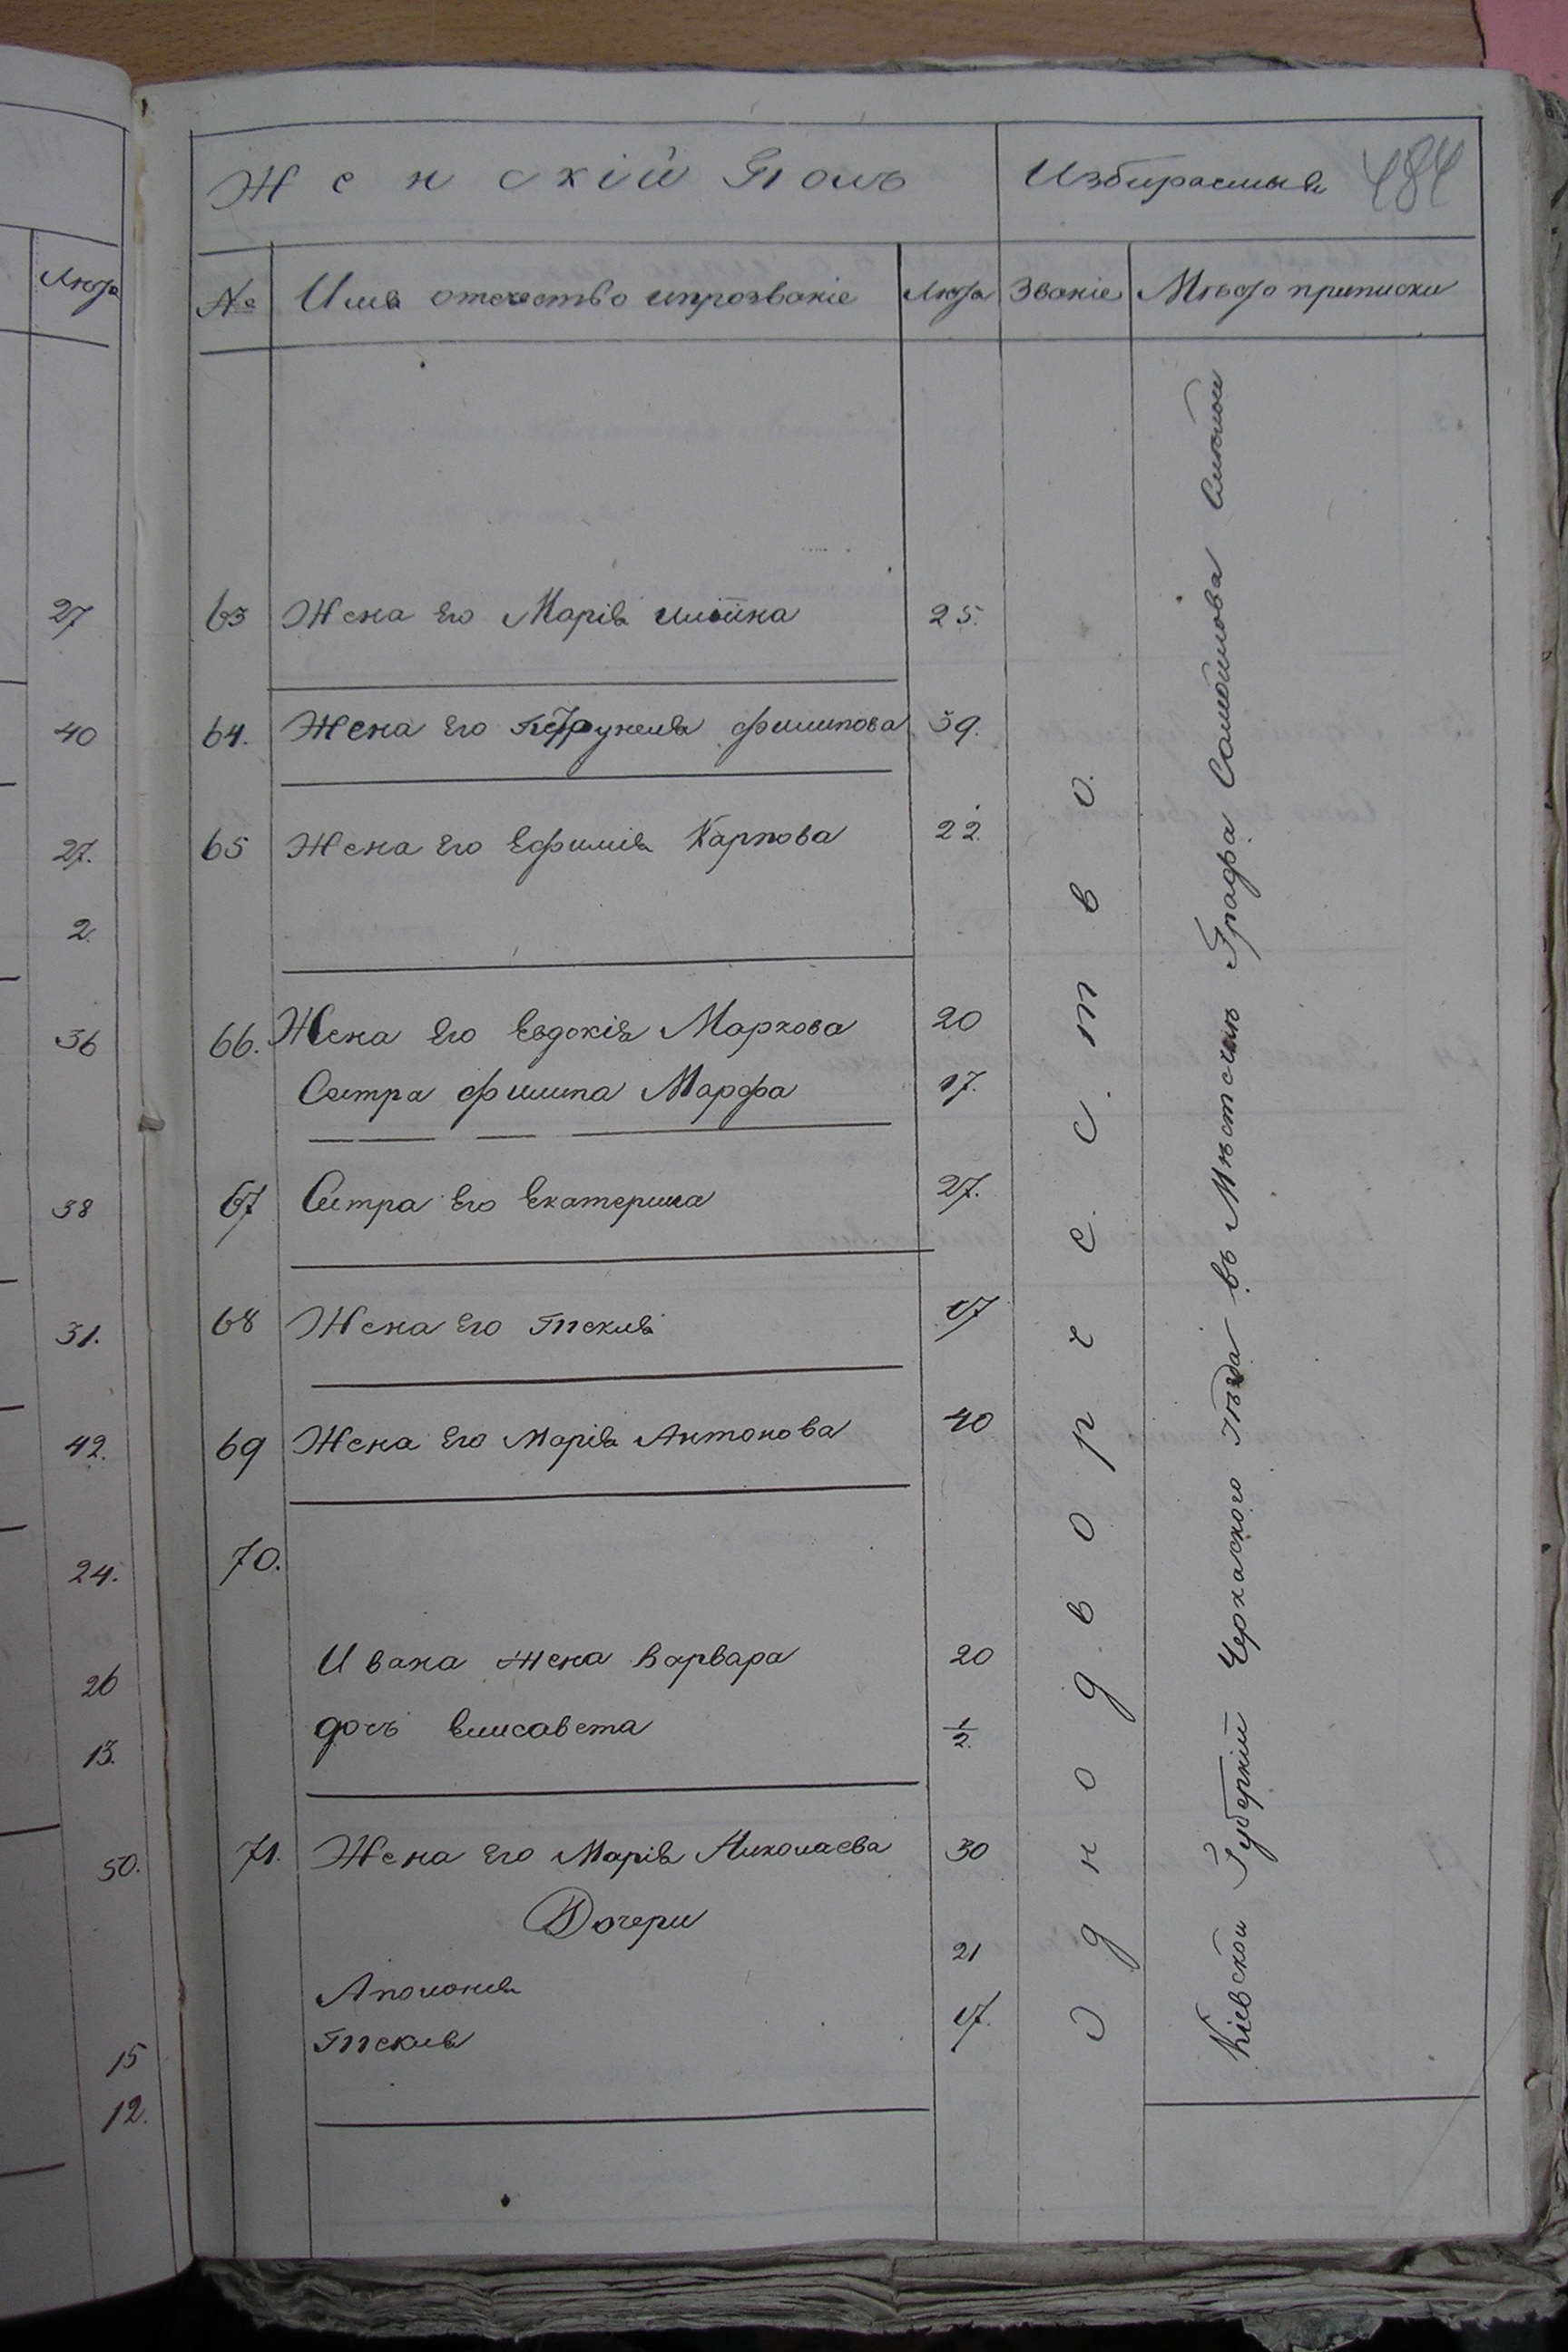 Женскій Полъ
Избираемыя
484
Люта
№
Имя отечество ипрозваніе
Лѣта
Званіе
Мѣсто приписки
27
63 Жена Его Марія 25.
40
64. Жена Его Петрунеля Филипова 39.
27.
65 Жена Его Ефимія Карпова 22.
2.
36
66. Жена Его Евдокія Маркова 20
Сестра Филипа Марфа 17.
38
67 Сестра Его Екатерина 27.
31.
68 Жена Его Текля 17
42.
69 Жена Его Марія Антонова 40
24.
70.
26
Ивана жена Варвара 20
13.
дочь Елисавета 1/2.
50.
71. Жена Его Марія Николаева 30
Дочери
Аполонія 21
15
Текля 17.
12.
Однодворчество.
Кіевской Губерніи Черкаского Уѣзда въ Мѣстечкѣ Графа Самойлова Смѣлой